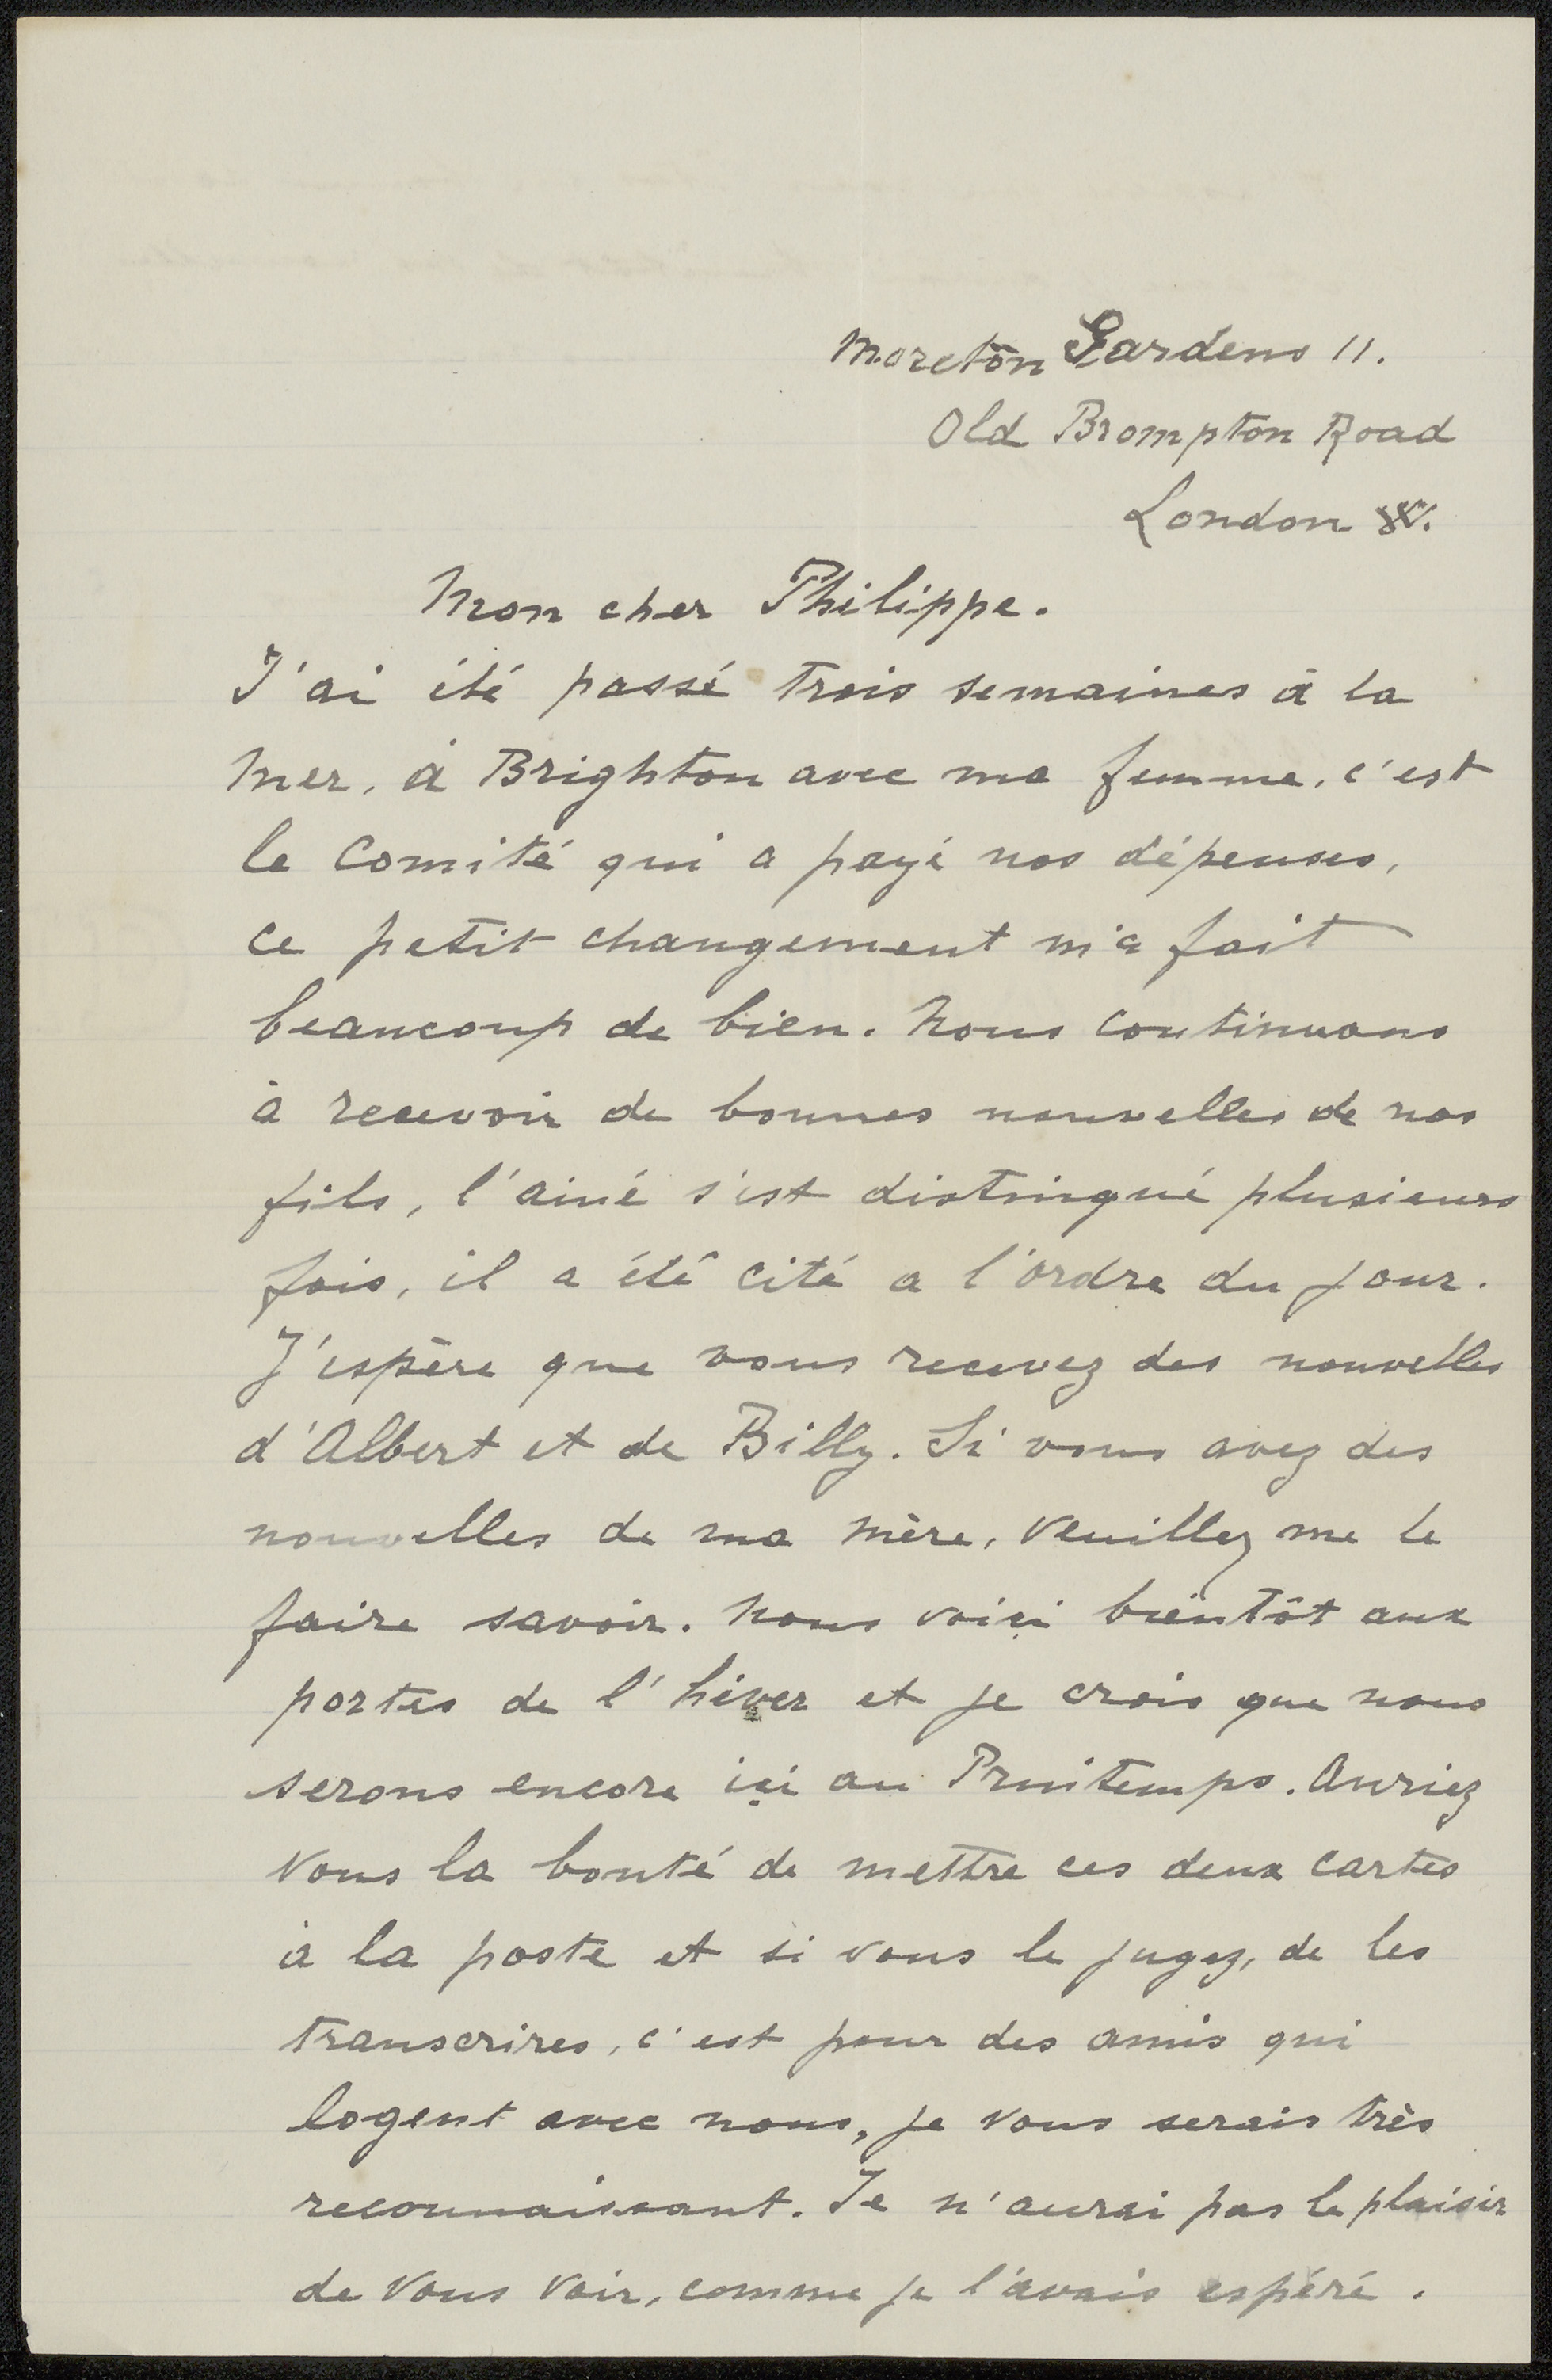 Moreton Gardens 11.
Old Brompton Road
London W.
Mon cher Philippe.
J'ai été passé trois semaines à la
mer, à Brighton avec ma femme, c'est
le Comité qui a payé nos dépenses,
ce petit changement m'a fait
beaucoup de bien. Nous continuons
à recevoir de bonnes nouvelles de nos
fils, l'ainé s'est distingué plusieurs
fois, il a été cité a l'ordre du jour.
J'espère que vous recevez des nouvelles
d'Albert et de Billy. Si vous avez des
nouvelles de ma mère, veuillez me le
faire savoir. Nous voici bientôt aux
portes de l'hiver et je crois que nous
serons encore ici au Printemps. Auriez
vous la bonté de mettre ces deux cartes
à la poste et si vous le jugez, de les
transcrires, c'est pour des amis qui
logent avec nous, je vous serais très
reconnaissant. Je n'aurai pas le plaisir
de vous voir, comme je l'avais espéré.